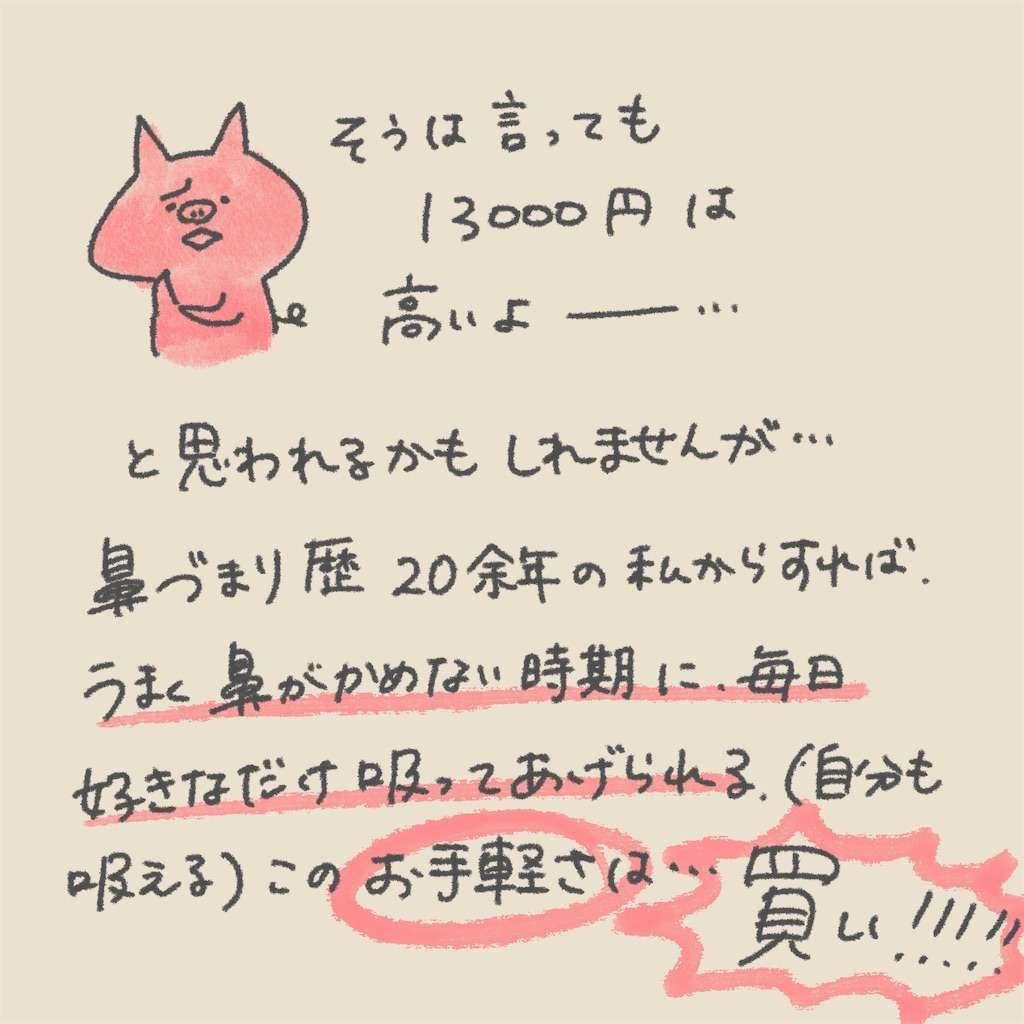 そうは言っても
13000円は
高いよ――…
と思われるかもしれませんが…
鼻づまり歴20余年の私からすれば、
うまく鼻がかめない時期に、毎日
好きなだけ吸ってあげられる。(自分も
吸える)このお手軽さは…買い!!!!!